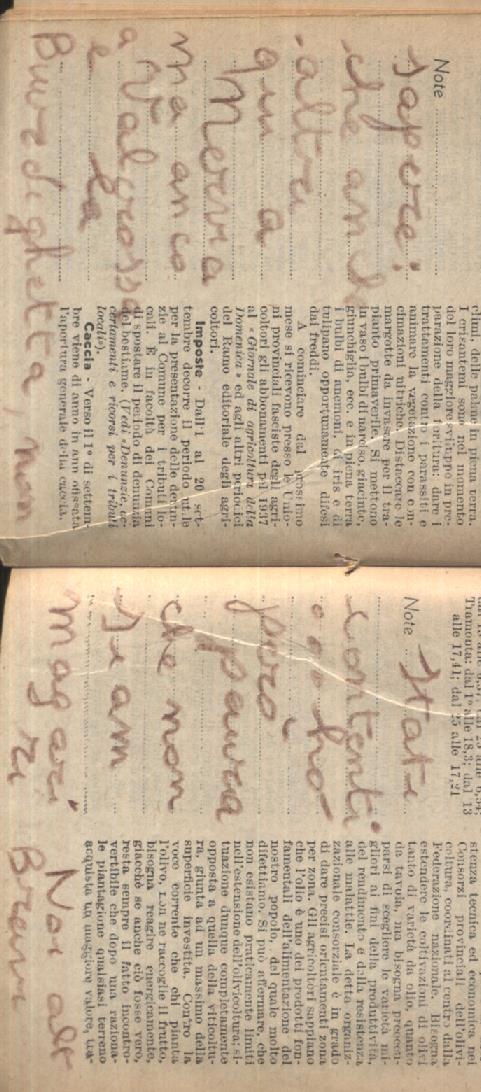 Note
sapere;
che an
altri
qui a
Nervia
ma anco
a
e la
Burdighetta non
climi delle palme in piena terra.
I crisantemi sono nel momento
del loro maggiore sviluppo in pre-
parazione della fioritura: dare i
trattamenti contro i parassiti e
animare la vegetazione con con-
cimazioni nitriche. Distaccare le
margotte da invasare per il tra-
pianto primaverile. Si mettono
in vaso i bulbi di narciso, giacinto,
giunchiglia, ecc. in piena terra
i bulbi di anemoni, di iris e di
tulipano opportunamente difesi
dai freddi.
A cominciare dal prossimo
mese si ricevono presso le Unio-
ni provinciali fasciste degli agri-
coltori gli abbonamenti pel 1937
al « Giornale di agricoltura della
Domenica » ed agli altri periodici
del Ramo editoriale degli agri-
coltori.
Imposte - Dall'1 al 20 set-
tembre decorre il periodo utile
per la presentazione delle denun-
zie al Comune per i tributi lo-
cali. È in facoltà dei Comuni
di spostare il periodo di denunzia
del bestiame. (Vedi « Denunzie, ac-
certamenti e ricorsi per i tributi
locali»).
Caccia - Verso il 1° di settem-
bre viene di anno in anno fissata
l'apertura generale della caccia.
Tramonta: dal 1° alle 18,3; dal 13
alle 17,41; dal 25 alle 17,21
Note
Stati
contenti
ooo ho
però
paura
che non
siam
magari
Noi alt
ri Bravi
stenza tecnica ed economica nei
Consorzi provinciali dell'olivi-
coltura, coordinati al centro dalla
Federazione nazionale. Bisogna
estendere le coltivazioni di olivi
tanto di varietà da olio, quanto
da tavola, ma bisogna preoccu-
parsi di scegliere le varietà mi-
gliori ai fini della produttività,
del rendimento e della resistenza
alle malattie. La detta organiz-
zazione consorziale è in grado
di dare precisi orientamenti zona
per zona. Gli agricoltori sappiano
che l'olio è uno dei prodotti fon-
damentali dell'alimentazione del
nostro popolo, del quale molto
difettiamo. Si può affermare che
non esistano praticamente limiti
nell'estensione dell'olivicoltura; si-
tuazione dunque completamente
opposta a quella della viticoltu-
ra, giunta ad un massimo della
superficie investita. Contro la
voce corrente che chi pianta
l'olivo non ne raccoglie il frutto,
bisogna reagire energicamente,
giacchè se anche ciò fosse vero,
resta sempre il fatto incontro-
vertibile che dopo una raziona-
le piantagione qualsiasi terreno
acquista un maggiore valore, tra-